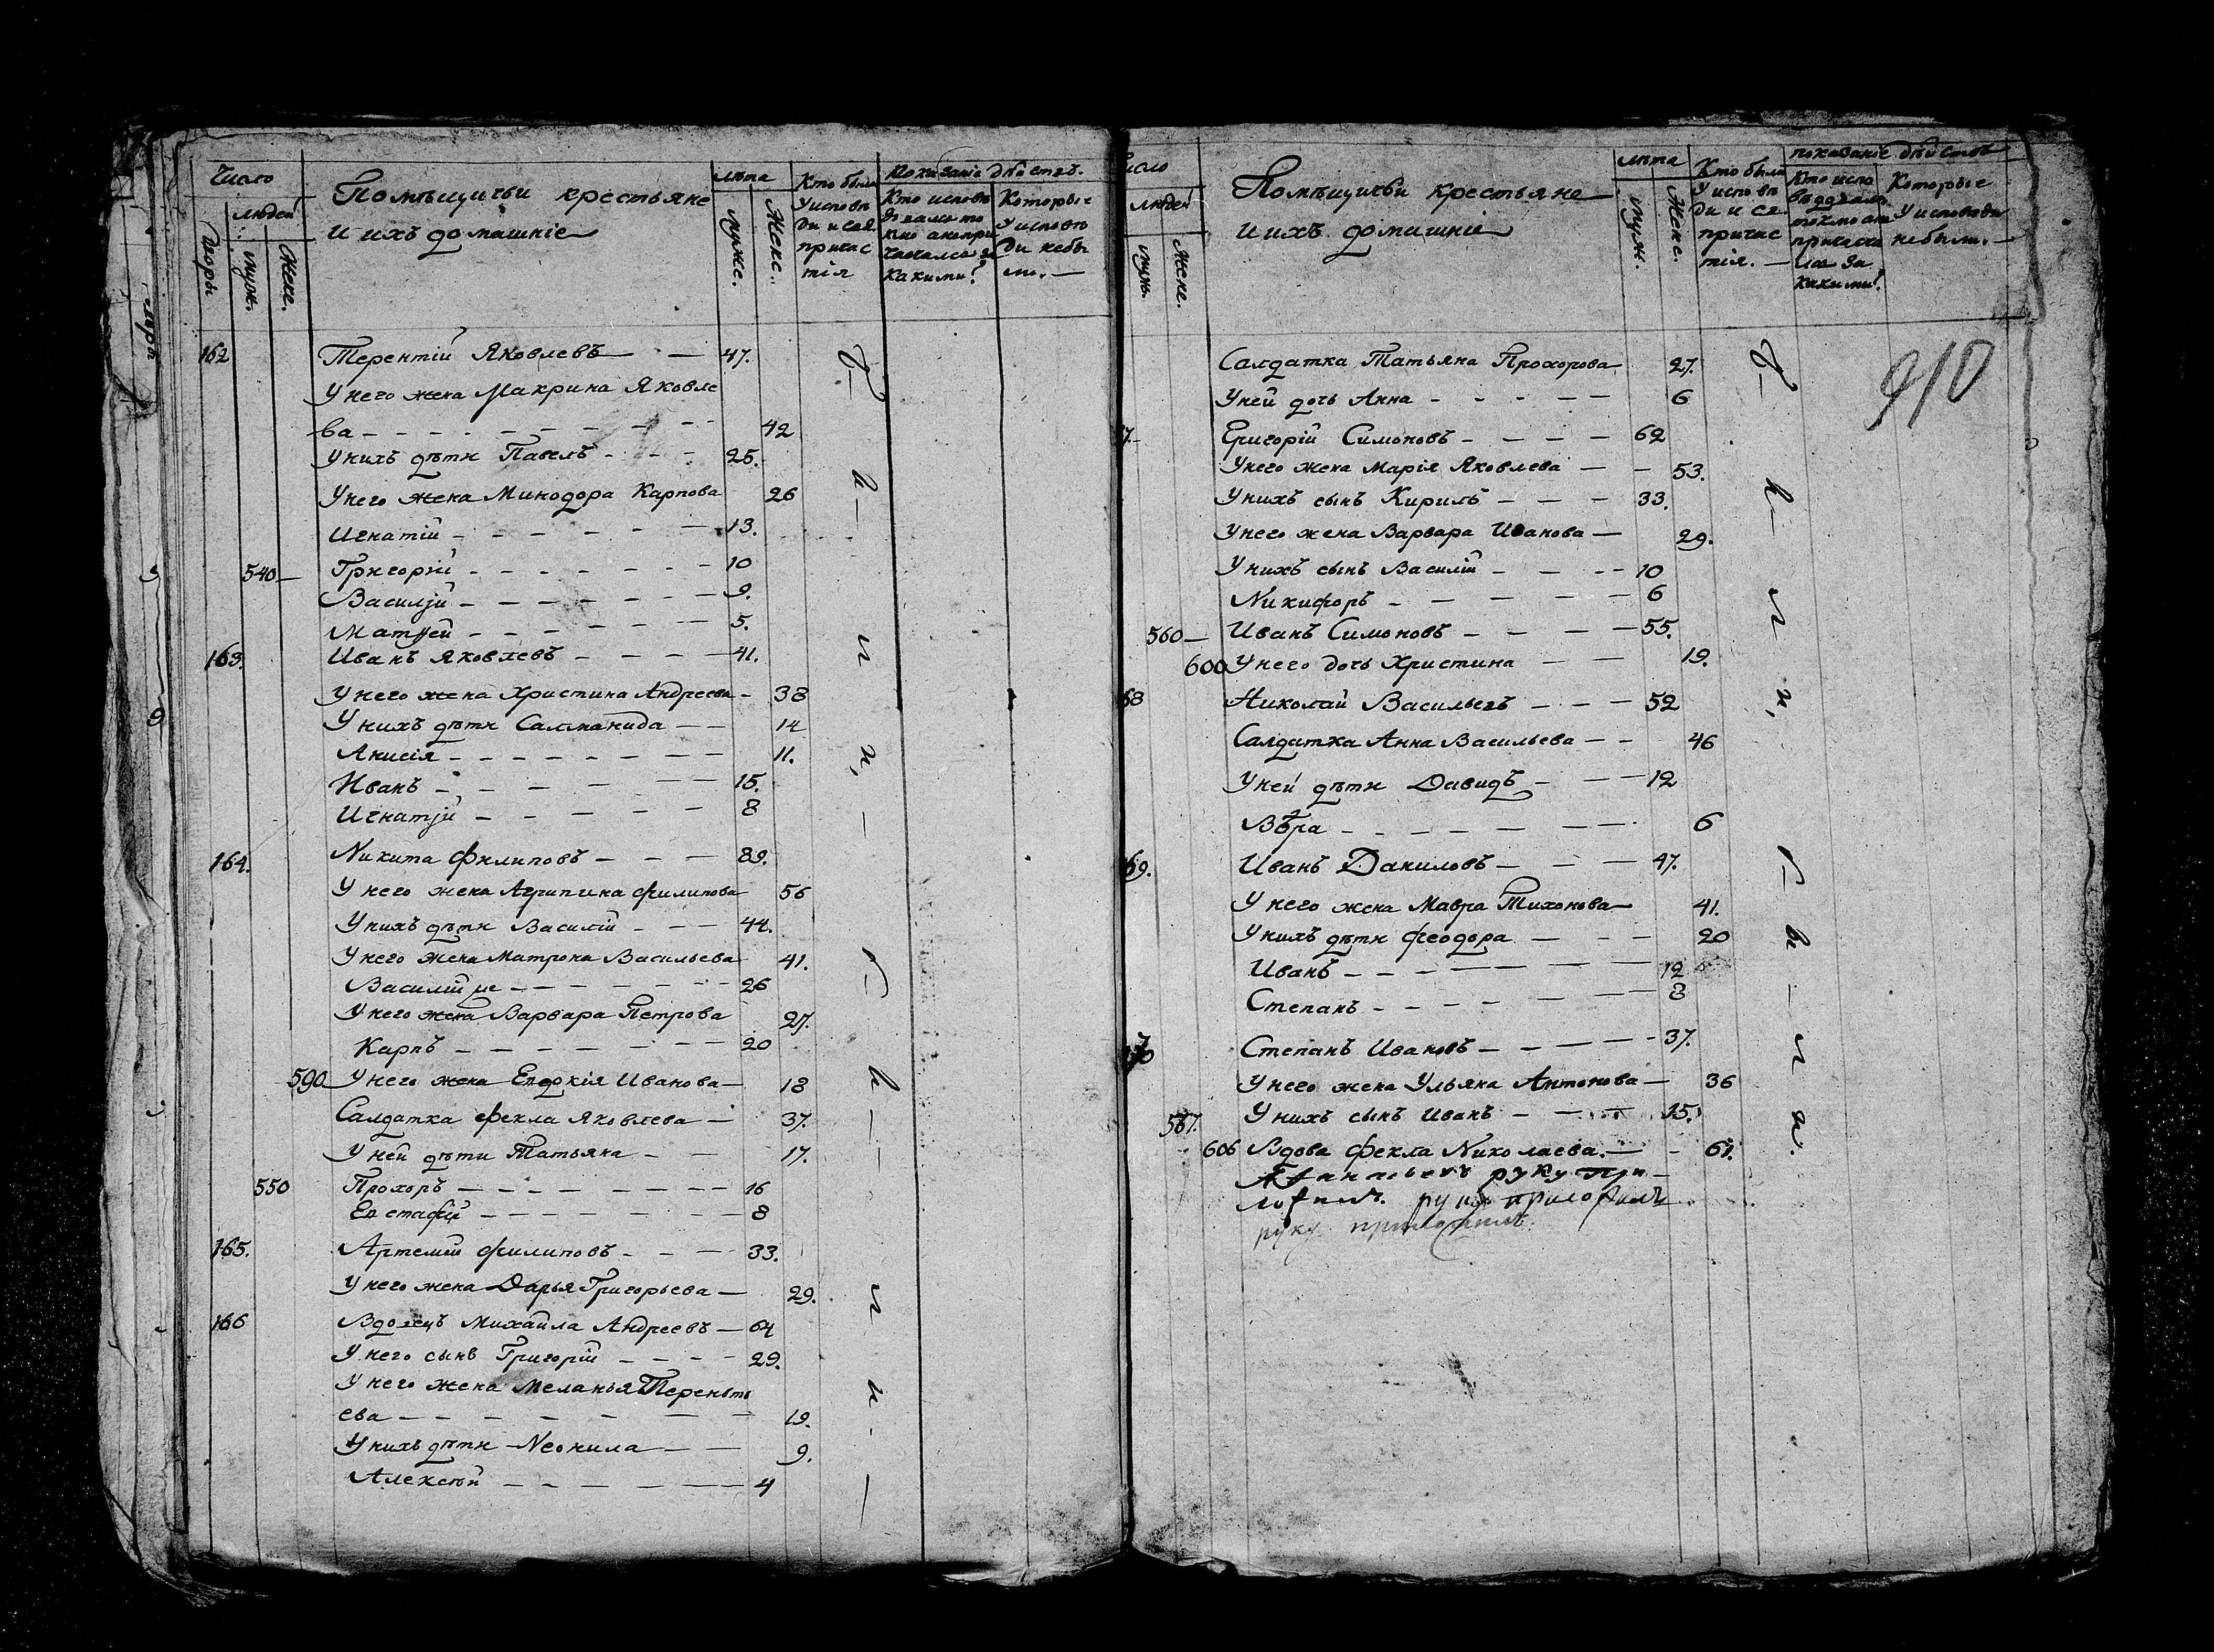 Число
людей
Дворы
муж.
Жене.
Помѣщичьи крестьяне
и ихъ домашніе
лѣта
муже.
Женс.
Кто были
У исповѣ
ди и св.
причас
тія
показаніе дѣйствъ.
Кто исповѣ
довался то
кмо а непри
чащался за
какими?
Которые
У исповѣ
ди небы
ли. —
162 Терентій Яковлевъ — — 47.
У него жена Макрина Яковле
ва — — — 42
У нихъ дѣти Павелъ — — — 25.
У него жена Минодора Карпова 26
Игнатій — — — 13.
540 — Григорій — — — 10
Василій — — — 9.
Матѳей — — — 5.
163. Иванъ Яковлевъ — — — 41.
У него жена Христина Андреева — 38
У нихъ дѣти Саламанида — — 14
Анисія — — — 11.
Иванъ — — — 15.
Игнатій — — — 8
164. Никита Филиповъ — — — 89.
У него жена Агрипина Филипова 56
У нихъ дѣти Василій — — — 44.
У него жена Матрона Васильева 41.
Василій же — — — 26
У него жена Варвара Петрова 27.
Карпъ — — — 20
590 У него жена Евдокія Иванова — 18
Салдатка Фекла Яковлева — 37.
У ней дѣти Татьяна — — 17.
550 Прохоръ — — — 16
Евстафій — — — 8
165. Артемій Филиповъ — — — 33.
У него жена Дарья Григорьева — 29.
166 Вдовецъ Михаила Андреевъ — 64
У него сынъ Григорій — — — 29.
У него жена Меланья Тереньть
ева — — — 19.
У нихъ дѣти Неонила — — 9.
Алексѣй — — — 4
Б
ы
л
и,
Б
ы
л
и
Число
людей
мужь.
Жене.
Помѣщичьи крестьяне
и ихъ домашніе
лѣта
муж.
Женс.
Кто были
У исповѣ
ди и св.
причас
тія. —
показаніе дѣйствъ
Кто испо
вѣдовалъ
токмо а не
причаща
лся за
какими?
Которые
У исповѣди
небыли. —
910
Салдатка Татьяна Прохорова 27.
У ней дочь Анна — — — 6
7. Григорій Симоновъ — — — 62
У него жена Марія Яковлева — — 53.
У нихъ сынъ Кирилъ — — — 33.
У него жена Варвара Иванова — 29.
У нихъ сынъ Василій — — — 10
Никифоръ — — — 6
560 — Иванъ Симоновъ — — — 55.
600 У него дочь Христина — — 19.
68 Николай Васильевъ — — — 52
Салдатка Анна Васильева — — 46
У ней дѣти Давидъ — — — 12
Вѣра — — — 6
69. Иванъ Даниловъ — — — 47.
У него жена Мавра Тихонова — 41.
У нихъ дѣти Феодора — — — 20
Иванъ — — — 12
Степанъ — — — 8
70 Степанъ Ивановъ — — — 37.
У него жена Ульяна Антонова — 36
567. У нихъ сынъ Иванъ — — — 15.
606 Вдова Фекла Николаева. — — 61.
руку при
ложилъ. руку приложилъ
руку приложилъ
Б
ы
л
и,
Б
ы
л
и.